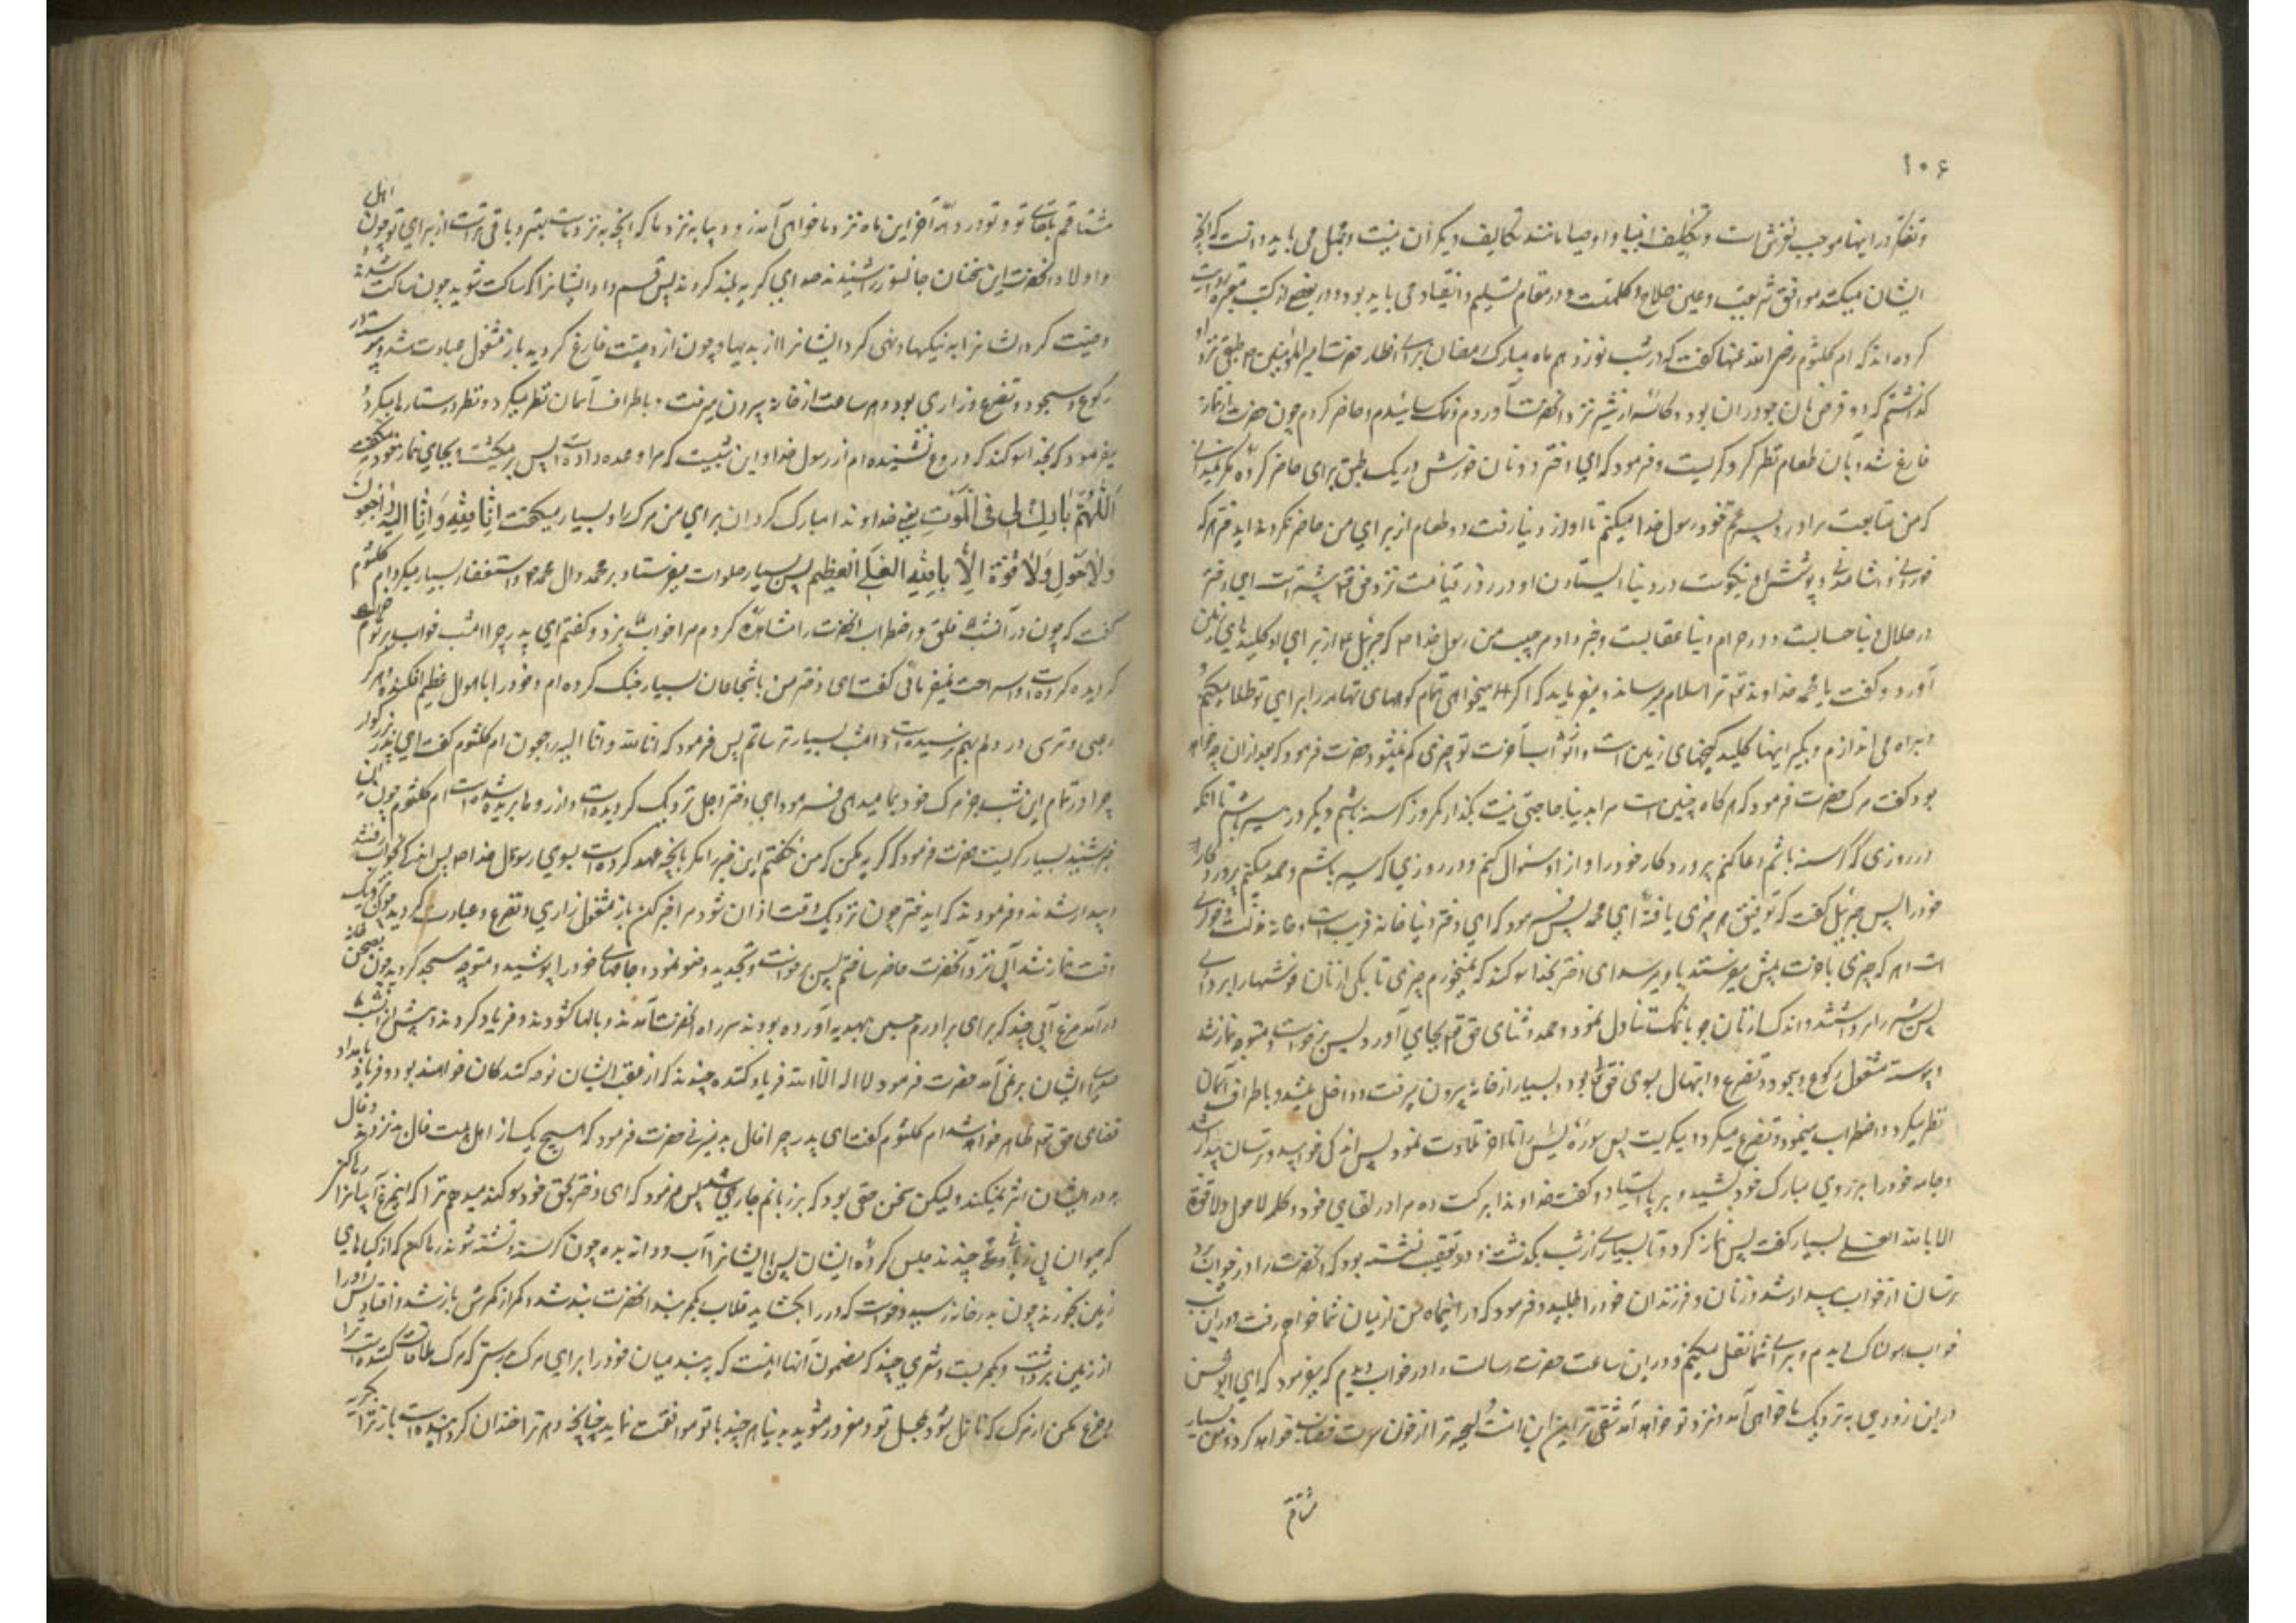 ۱۰۶
و تفکر در اینها موجب لغزش است و تکلیف انبیا و اوصیا مانند تکالیف دیگران نیست و مجمل می باید دانست که آنچه
ایشان میکنند موافق شریعت و عین صلاح و حکمتست و در مقام تسلیم و انقیاد می باید بود و در بعضی از کتب معتبره روایت
کرده اند که ام کلثوم رضی الله عنها گفت که در شب نوزدهم ماه مبارک رمضان برای افطار حضرت امیر المؤمنین طبقی نزد او
گذاشتم که دو قرص نان جو در آن بود و کاسه از شیر نزد آنحضرت آوردم و نمک سائیدم و حاضر کردم چون حضرت از نماز
فارغ شد و بآن طعام نظر کرد گریست و فرمود که ای دختر دو نان خورش در یک طبق برای حاضر کرده مگر نمیدانی
که من متابعت برادر و پسر عم خود رسول خدا میکنم تا او از دنیا رفت دو طعام از برای من حاضر نکردند ای دختر هر که
خوردنی و آشامیدنی و پوشش او نیکوست در دنیا ایستادن او در روز قیامت نزد حق تعالی بیشتر است ای دختر
در حلال دنیا حسابست و در حرام دنیا عقابست و خبر داد مرا حبیب من رسول خدا که جبرئیل از برای او کلیدهای زمین
آورد و گفت یا محمد خداوند تو ترا سلام میرساند و میفرماید که اگر میخواهی تمام کوههای تهامه را برای تو طلا میکنم
و براه می اندازم و بگیر اینها کلید گنجهای زمین است و از ثواب آخرت تو چیزی کم نمیشود حضرت فرمود که بعد از آن چه خواهد
بود گفت مرگ حضرت فرمود که هر گاه چنین است مرا بدنیا حاجتی نیست بگذار که یک روز گرسنه باشم و یک روز سیر باشم تا آنکه
در روزی که گرسنه باشم دعا کنم پروردگار خود را و از او سئوال کنم و در روزی که سیر باشم حمد میکنم پروردگار
خود را پس جبرئیل گفت که توفیق هر چیزی یافته ای محمد پس فرمود که ای دختر دنیا خانه فریبست و خانه مذلت و خواری
است هر که چیزی باخرت پیش میفرستد باو میرسد ای دختر بخدا سوگند که نمیخورم چیزی تا یکی از نان خورشها را برداری
پس شیر را برداشتند و اندکی از نان جو با نمک تناول نمود و حمد و ثنای حق تعالی بجای آورد پس برخواست و متوجه نماز شد
و پیوسته مشغول رکوع و سجود و تضرع و ابتهال بسوی حق تعالی بود و بسیار از خانه بیرون میرفت و داخل میشد و باطراف آسمان
نظر میکرد و اضطراب مینمود و تضرع میکرد و میگریست پس سوره یس را تا آخر تلاوت نمود پس اندکی خوابید و ترسان بیدار شد
و جامه خود را بر روی مبارک خود کشید و بر پا ایستاد و گفت خداوندا برکت ده مرا در لقای خود و کلمه لا حول و لا قوة
الا بالله العلی بسیار گفت پس نماز کرد تا بسیاری از شب بگذشت و در تعقیب نشسته بود که آنحضرت را در خواب برد
ترسان از خواب بیدار شد و زنان و فرزندان خود را طلبید و فرمود که در این ماه من از میان شما خواهم رفت و در این شب
خواب هولناکی دیدم و برای شما نقل میکنم و در این ساعت حضرت رسالت را در خواب دیدم که میفرمود که ای ابو الحسن
در این زودی به نزدیک ما خواهی آمد و نزد تو خواهد آمد شقی ترین این امت و لحیه ترا از خون سرت خضاب خواهد کرد و من بسیار
مشتاقم
مشتاقم بلقای تو و تو در دهه آخر این ماه نزد ما خواهی آمد زود بیا به نزد ما که آنچه به نزد ماست بهتر و باقی تر است از برای تو چون اهل
و اولاد آنحضرت این سخنان جانسوز را شنیدند صدای گریه بلند کردند پس قسم داد ایشانرا که ساکت شوید چون ساکت شدند
وصیت کرد ایشانرا به نیکیها و نهی کرد ایشانرا از بدیها و چون از وصیت فارغ گردید باز مشغول عبادت شد و پیوسته در
رکوع و سجود و تضرع و زاری بود و هر ساعت از خانه بیرون میرفت و باطراف آسمان نظر میکرد و نظر در ستارها میکرد و
میفرمود که بخدا سوگند که دروغ نشنیده ام از رسول خدا و این شبیست که مرا وعده داده است پس بر میگشت و بجای نماز خود و میگفت
اَللّهُمَّ بارِک لی فِی الْمَوْتِ یعنی خداوندا مبارک گردان برای من مرگ را و بسیار میگفت اِنّا لِلّهِ وَاِنّا اِلَیْهِ راجِعُونَ
وَلا حَوْلَ وَلا قُوَّةَ اِلّا بِاللّهِ العَلیِّ العَظیم پس بسیار صلوات میفرستاد بر محمد و آل محمد و استغفار بسیار میکرد ام کلثوم
گفت که چون در آنشب قلق و اضطراب آنحضرت را مشاهده کردم مرا خواب نبرد و گفتم ای پدر چرا امشب خواب بر خود حرام
گردیده کرده است و استراحت نمیفرمائی گفت ای دختر من با شجاعان بسیار جنگ کرده ام و خود را باهوال عظیم افکنده هرگز
رعبی و ترسی در دلم بهم نرسیده است و امشب بسیار ترسانم پس فرمود که انا لله و انا الیه راجعون ام کلثوم گفت ای پدر بزرگوار
چرا در تمام این شب خبر مرگ خود بما میدهی فرمود ای دختر اجل نزدیک گردیده است و آرزوها بریده شده است ام کلثوم چون این
خبر شنید بسیار گریست حضرت فرمود که گریه مکن که من نگفتم این خبر را مگر بآنچه عهد کرده است بسوی من رسول خدا پس اندکی بخواب رفتند
و بیدار شدند و فرمودند که ای دختر چون نزدیک وقت اذان شود مرا خبر کن باز مشغول زاری و تضرع و عبادت گردید چون نزدیک
وقت نماز شد آب نزد آنحضرت حاضر ساختم پس برخواست و تجدید وضو نمود و جامهای خود را پوشید و متوجه مسجد گردید چون بصحن خانه
در آمد مرغ آبی چند که برای برادرم حسین بهدیه آورده بودند سر راه آنحضرت آمدند و بالها گشودند و فریاد کردند و پیش از آنشب
صدای ایشان بر نمی آمد حضرت فرمود لا اله الا الله فریاد کننده چندند که از عقب ایشان نوحه کنندگان خواهند بود و فریاد بامداد
قضای حق تعالی ظاهر خواهد شد ام کلثوم گفت ای پدر چرا فال بد میزنی حضرت فرمود که هیچ یک از اهل بیت فال بد نزند و فال
بد در ایشان اثر نمیکند ولیکن سخن حقی بود که بر زبانم جاری شد پس فرمود که ای دختر بحق خود سوگند میدهم ترا که این مرغ آبیانرا رها کنی
که حیوان بی زبانی چند حبس کرده ایشان پس یا ایشانرا آب و دانه بده چون گرسنه و تشنه شوند یا رها کن که از گیاههای
زمین بخورند چون بدر خانه رسید و خواست که در را بگشاید قلاب بکمربند آنحضرت بند شد و کمر از کمرش باز شد و افتاد پس او را
از زمین برداشت و بکمر بست و شعری چند که مضمون آنها اینست که به بند میان خود را برای مرگ بدرستی که مرگ ملاقات کننده است ترا
و جزع مکن از مرگ که نازل شود بمحل تو و مغرور مشوید به دنیا هر چند با تو موافقت نماید چنانچه دهر ترا خندان گردانیده است باز ترا بگریه